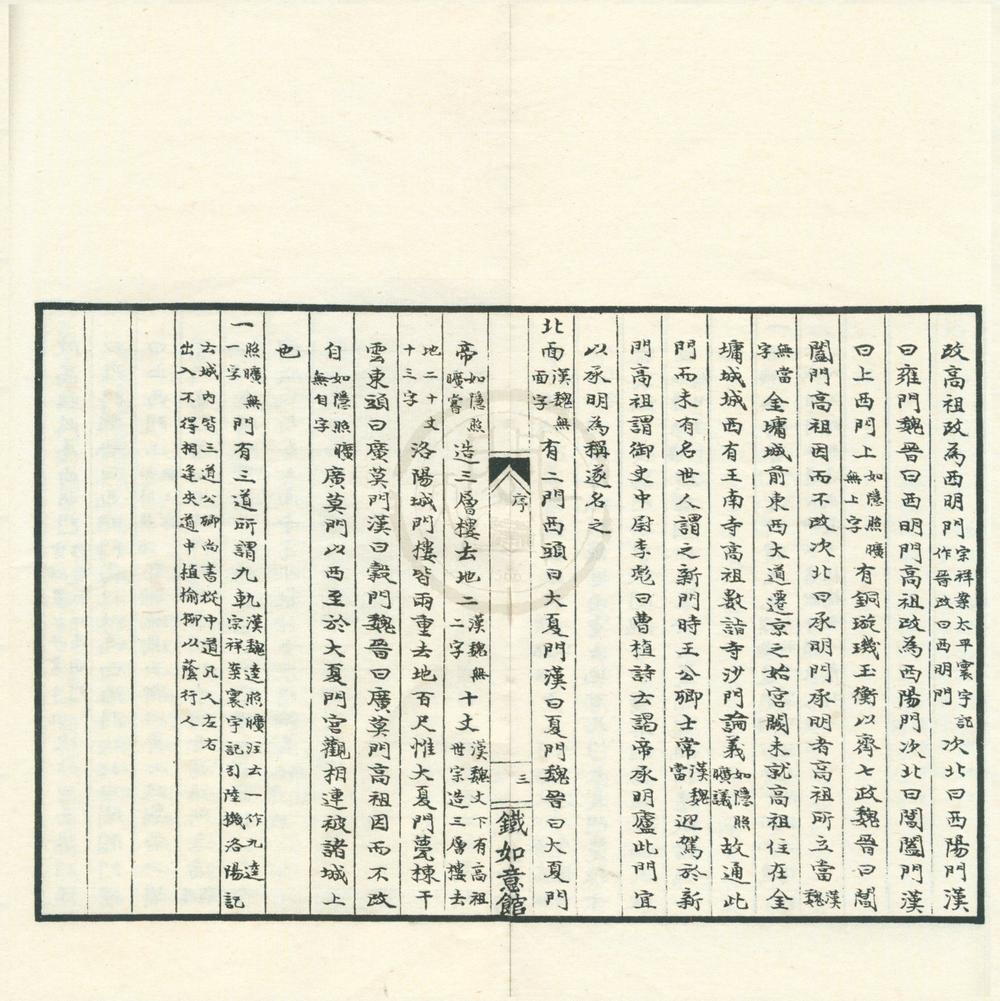 改高祖改為西明門宗祥案太平寰宇記作晉改曰西明門次北曰西陽門漢
曰雍門魏晉曰西明門高祖改為西陽門次北曰閶闔門漢
曰上西門上如隱照曠無上字有銅璇璣玉衡以齊七政魏晉曰閶
闔門高祖因而不改次北曰承明門承明者高祖所立當漢魏
無當字金墉城前東西大道遷京之始宮闕未就高祖住在金
墉城城西有王南寺高祖數詣寺沙門論義如隱照曠議故通此
門而未有名世人謂之新門時王公卿士常漢魏當迎駕於新
門高祖謂御史中尉李彪曰曹植詩云謁帝承明廬此門宜
以承明為稱遂名之
北面漢魏無面字有二門西頭曰大夏門漢曰夏門魏晉曰大夏門
序
三
鐵如意館
帝如隱照曠嘗造三層樓去地二漢魏無二字十丈漢魏丈下有高祖世宗造三層樓去
地二十丈十三字洛陽城門樓皆兩重去地百尺惟大夏門甍棟干
雲東頭曰廣莫門漢曰穀門魏晉曰廣莫門高祖因而不改
自如隱照曠無自字廣莫門以西至於大夏門宮觀相連被諸城上
也
一照曠無一字門有三道所謂九軌漢魏逵照曠注云一作九逵宗祥案寰宇記引陸機洛陽記
云城內皆三道公卿尚書從中道凡人左右出入不得相逢夾道中植榆柳以蔭行人